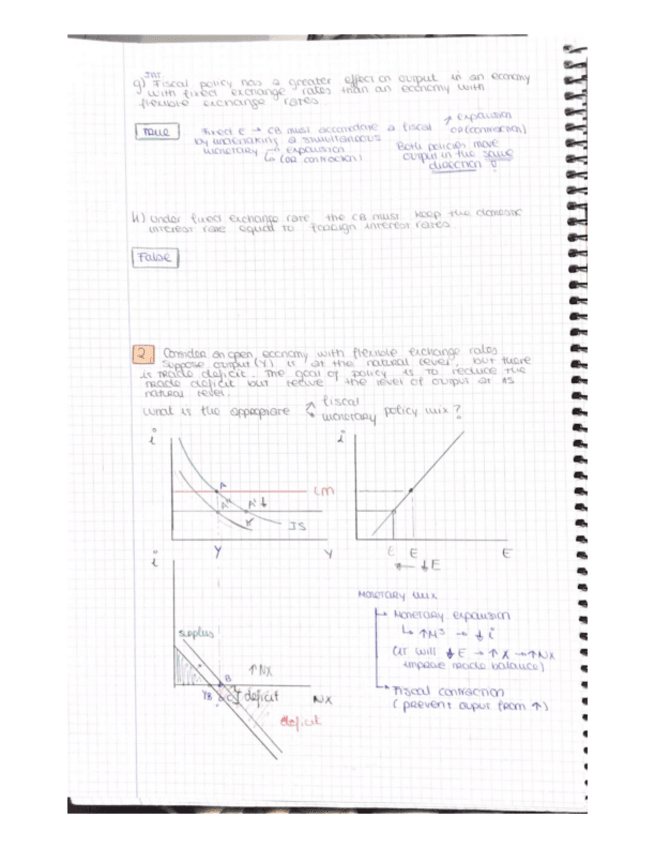 Int.
g) Fiscal policy has a greater effect on output in an economy
with fixed exchange rates than an economy with
flexible exchange rates.
True
Fixed E → CB must accomodate a fiscal ↗ expansion
or (contraction)
by undertaking a simultaneous
monetary → expansion
↳ (or contraction)
Both policies move
output in the same
direction
H) Under fixed exchange rate, the CB must keep the domestic
interest rate equal to foreign interest rates
False
2. Consider an open economy with flexible exchange rates
Suppose output (Y) is at the natural level, but there
is trade deficit. The goal of policy is to reduce the
trade deficit but the level of output at its
natural level.
What is the appropriate fiscal
monetary policy mix?
i
A
LM
A'' A' ↓
IS
Y Y
i
E E E
← ↓E
i
surplus
↑NX
B
YB C deficit NX
deficit
Monetary mix
Monetary expansion
↳ ↑Mˢ → ↓i
(it will ↓E → ↑X → ↑NX
improve trade balance)
Fiscal contraction
(prevent ouput from ↑)